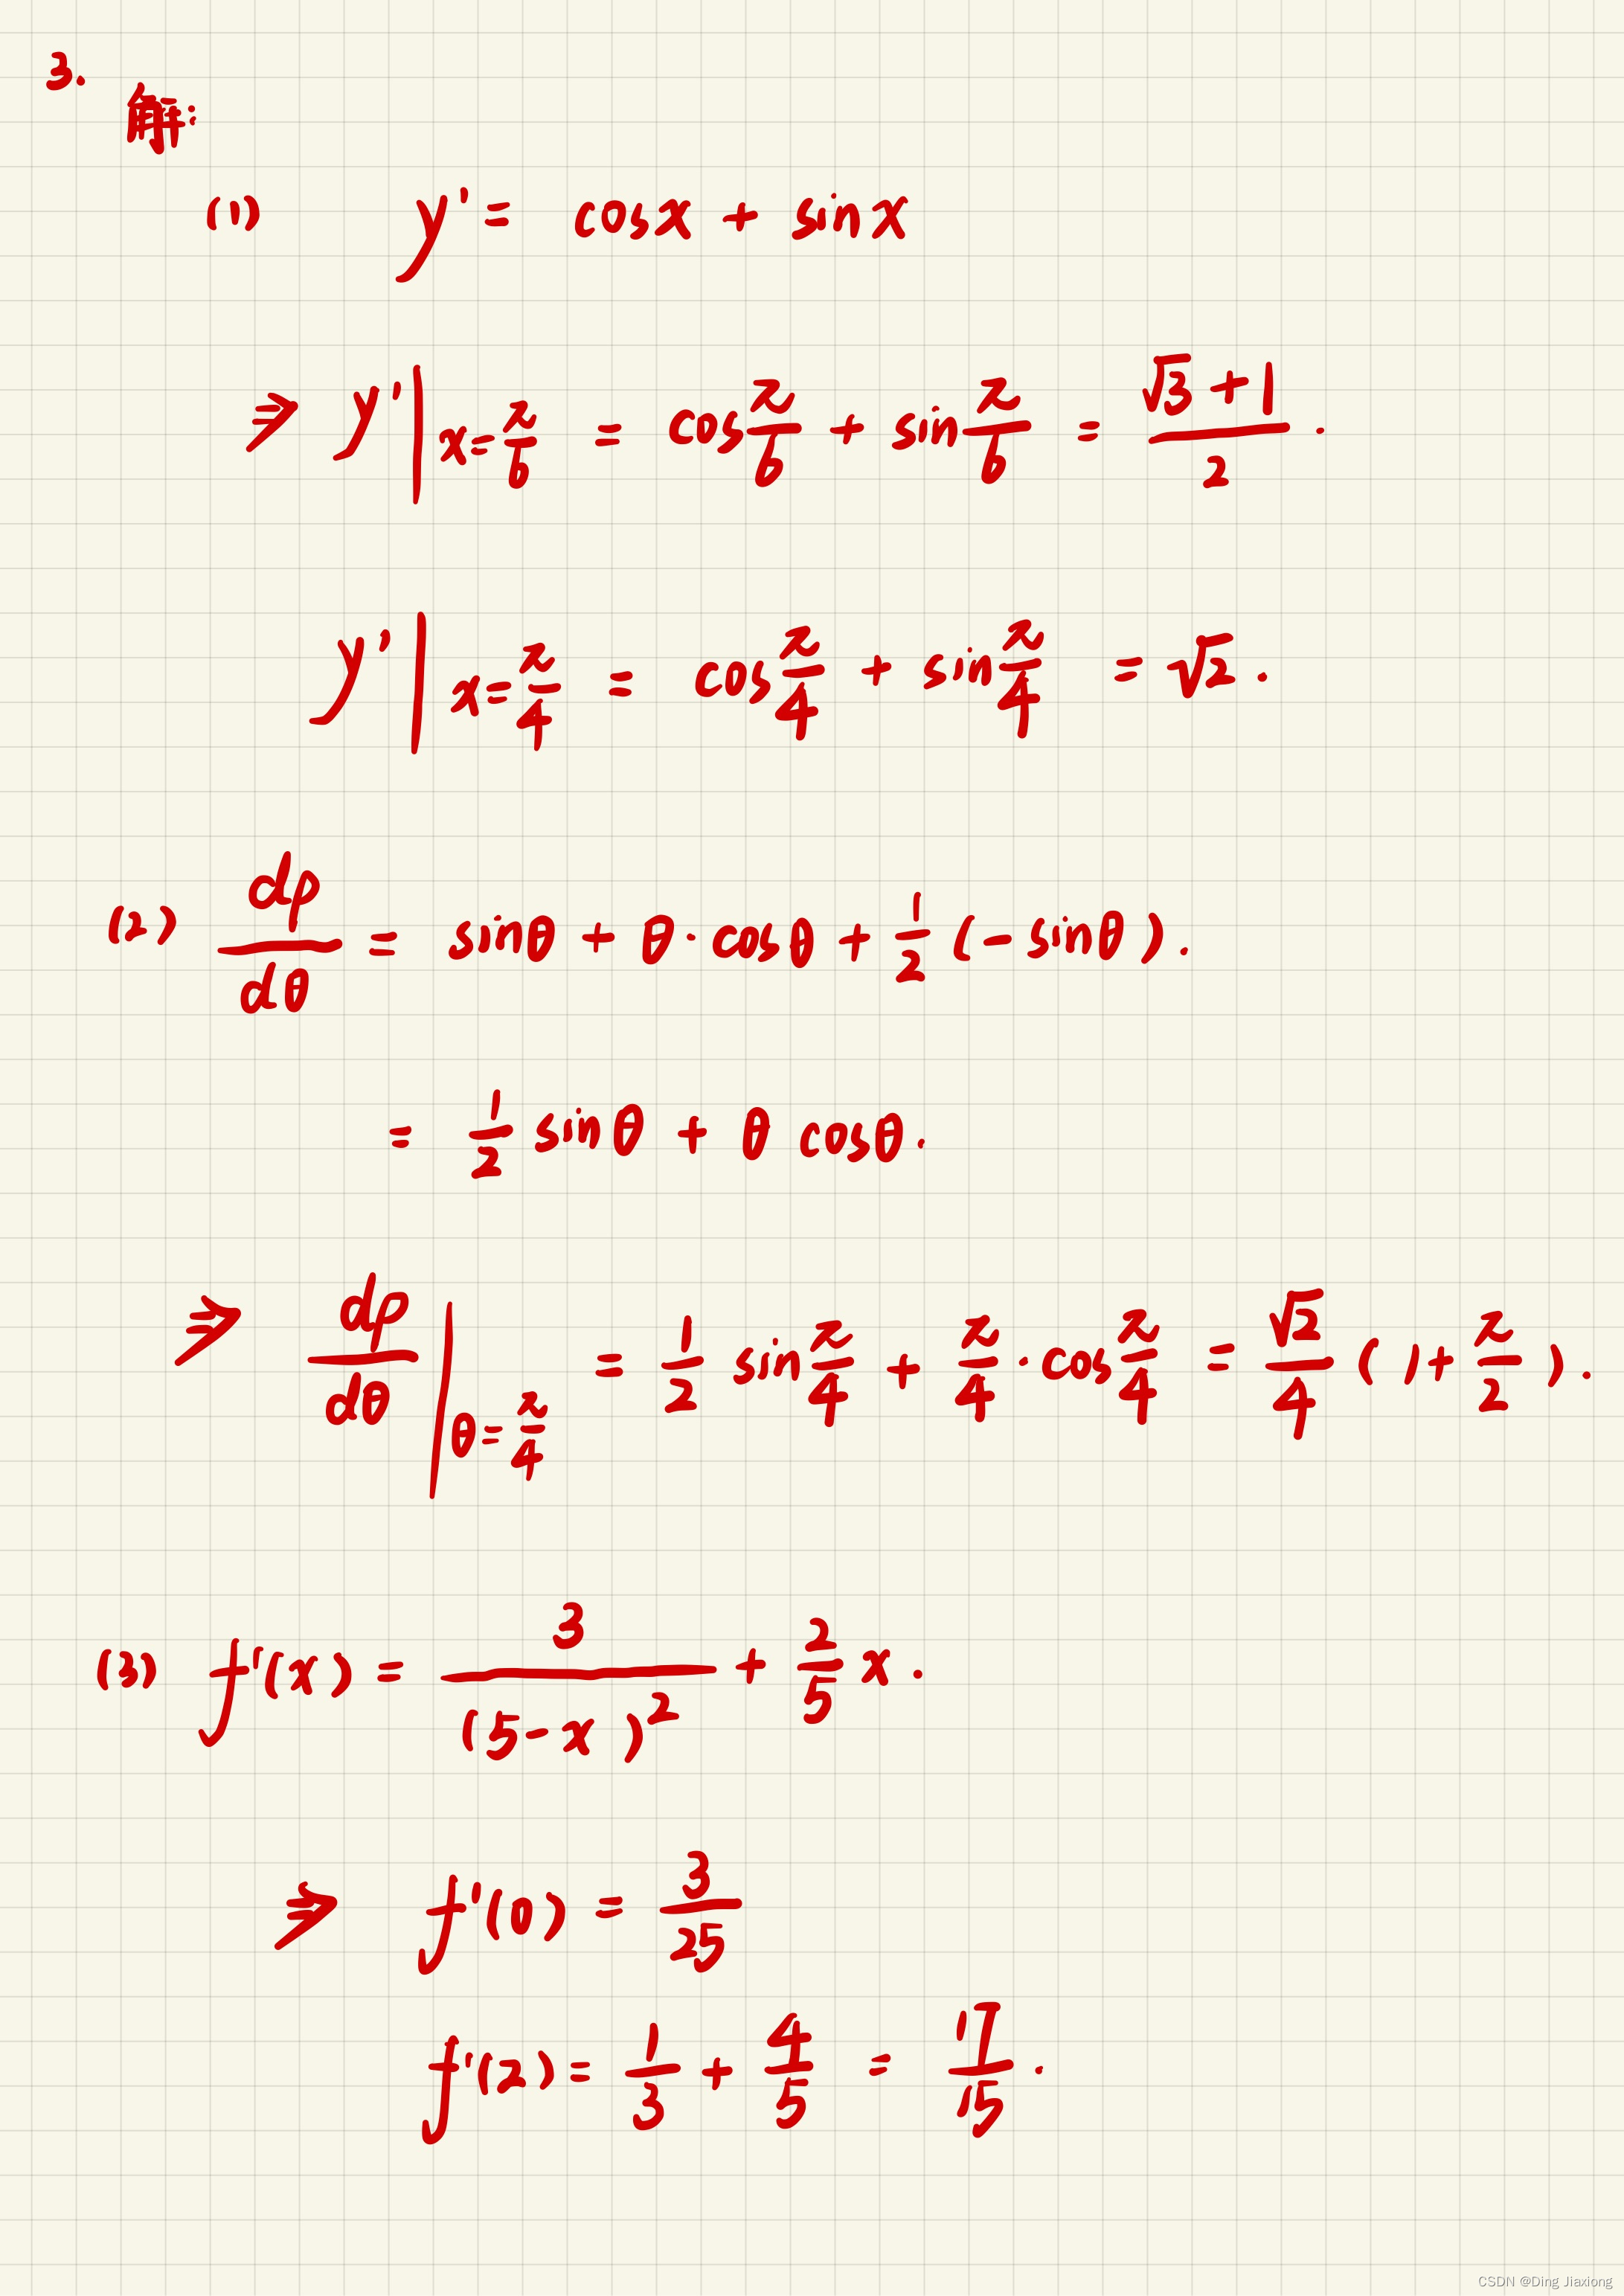 3.
解:
(1) y' = cosx + sinx
⇒ y'|x=π/6 = cos π/6 + sin π/6 = (√3+1)/2 .
y'|x=π/4 = cos π/4 + sin π/4 = √2 .
(2) dρ/dθ = sinθ + θ·cosθ + 1/2 (-sinθ) .
= 1/2 sinθ + θ cosθ .
⇒ dρ/dθ|θ=π/4 = 1/2 sin π/4 + π/4 · cos π/4 = √2/4 (1+π/2) .
(3) f'(x) = 3/(5-x)² + 2/5 x .
⇒ f'(0) = 3/25
f'(2) = 1/3 + 4/5 = 17/15 .
CSDN @Ding Jiaxiong